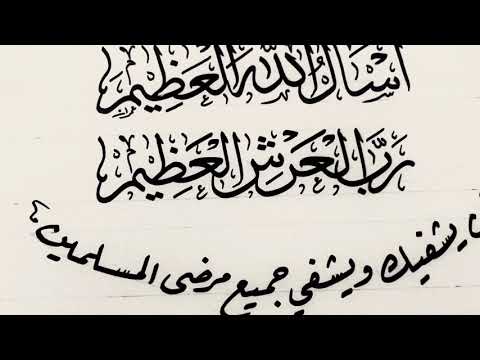 أَسْأَلُ اللهَ الْعَظِيمَ
رَبَّ الْعَرْشِ الْعَظِيمِ
يشفيك ويشفي جميع مرضى المسلمين